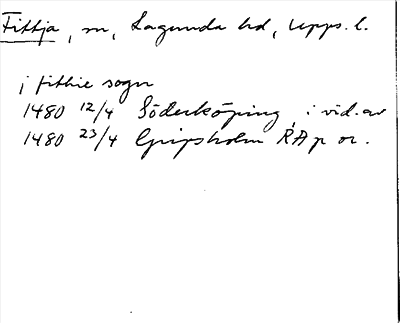 Fittja, sn, Lagunda hd, Upps. l.
j fithie sogn
1480 12/4 Söderköping, i vid. av
1480 23/4 Gripsholm RAp or.